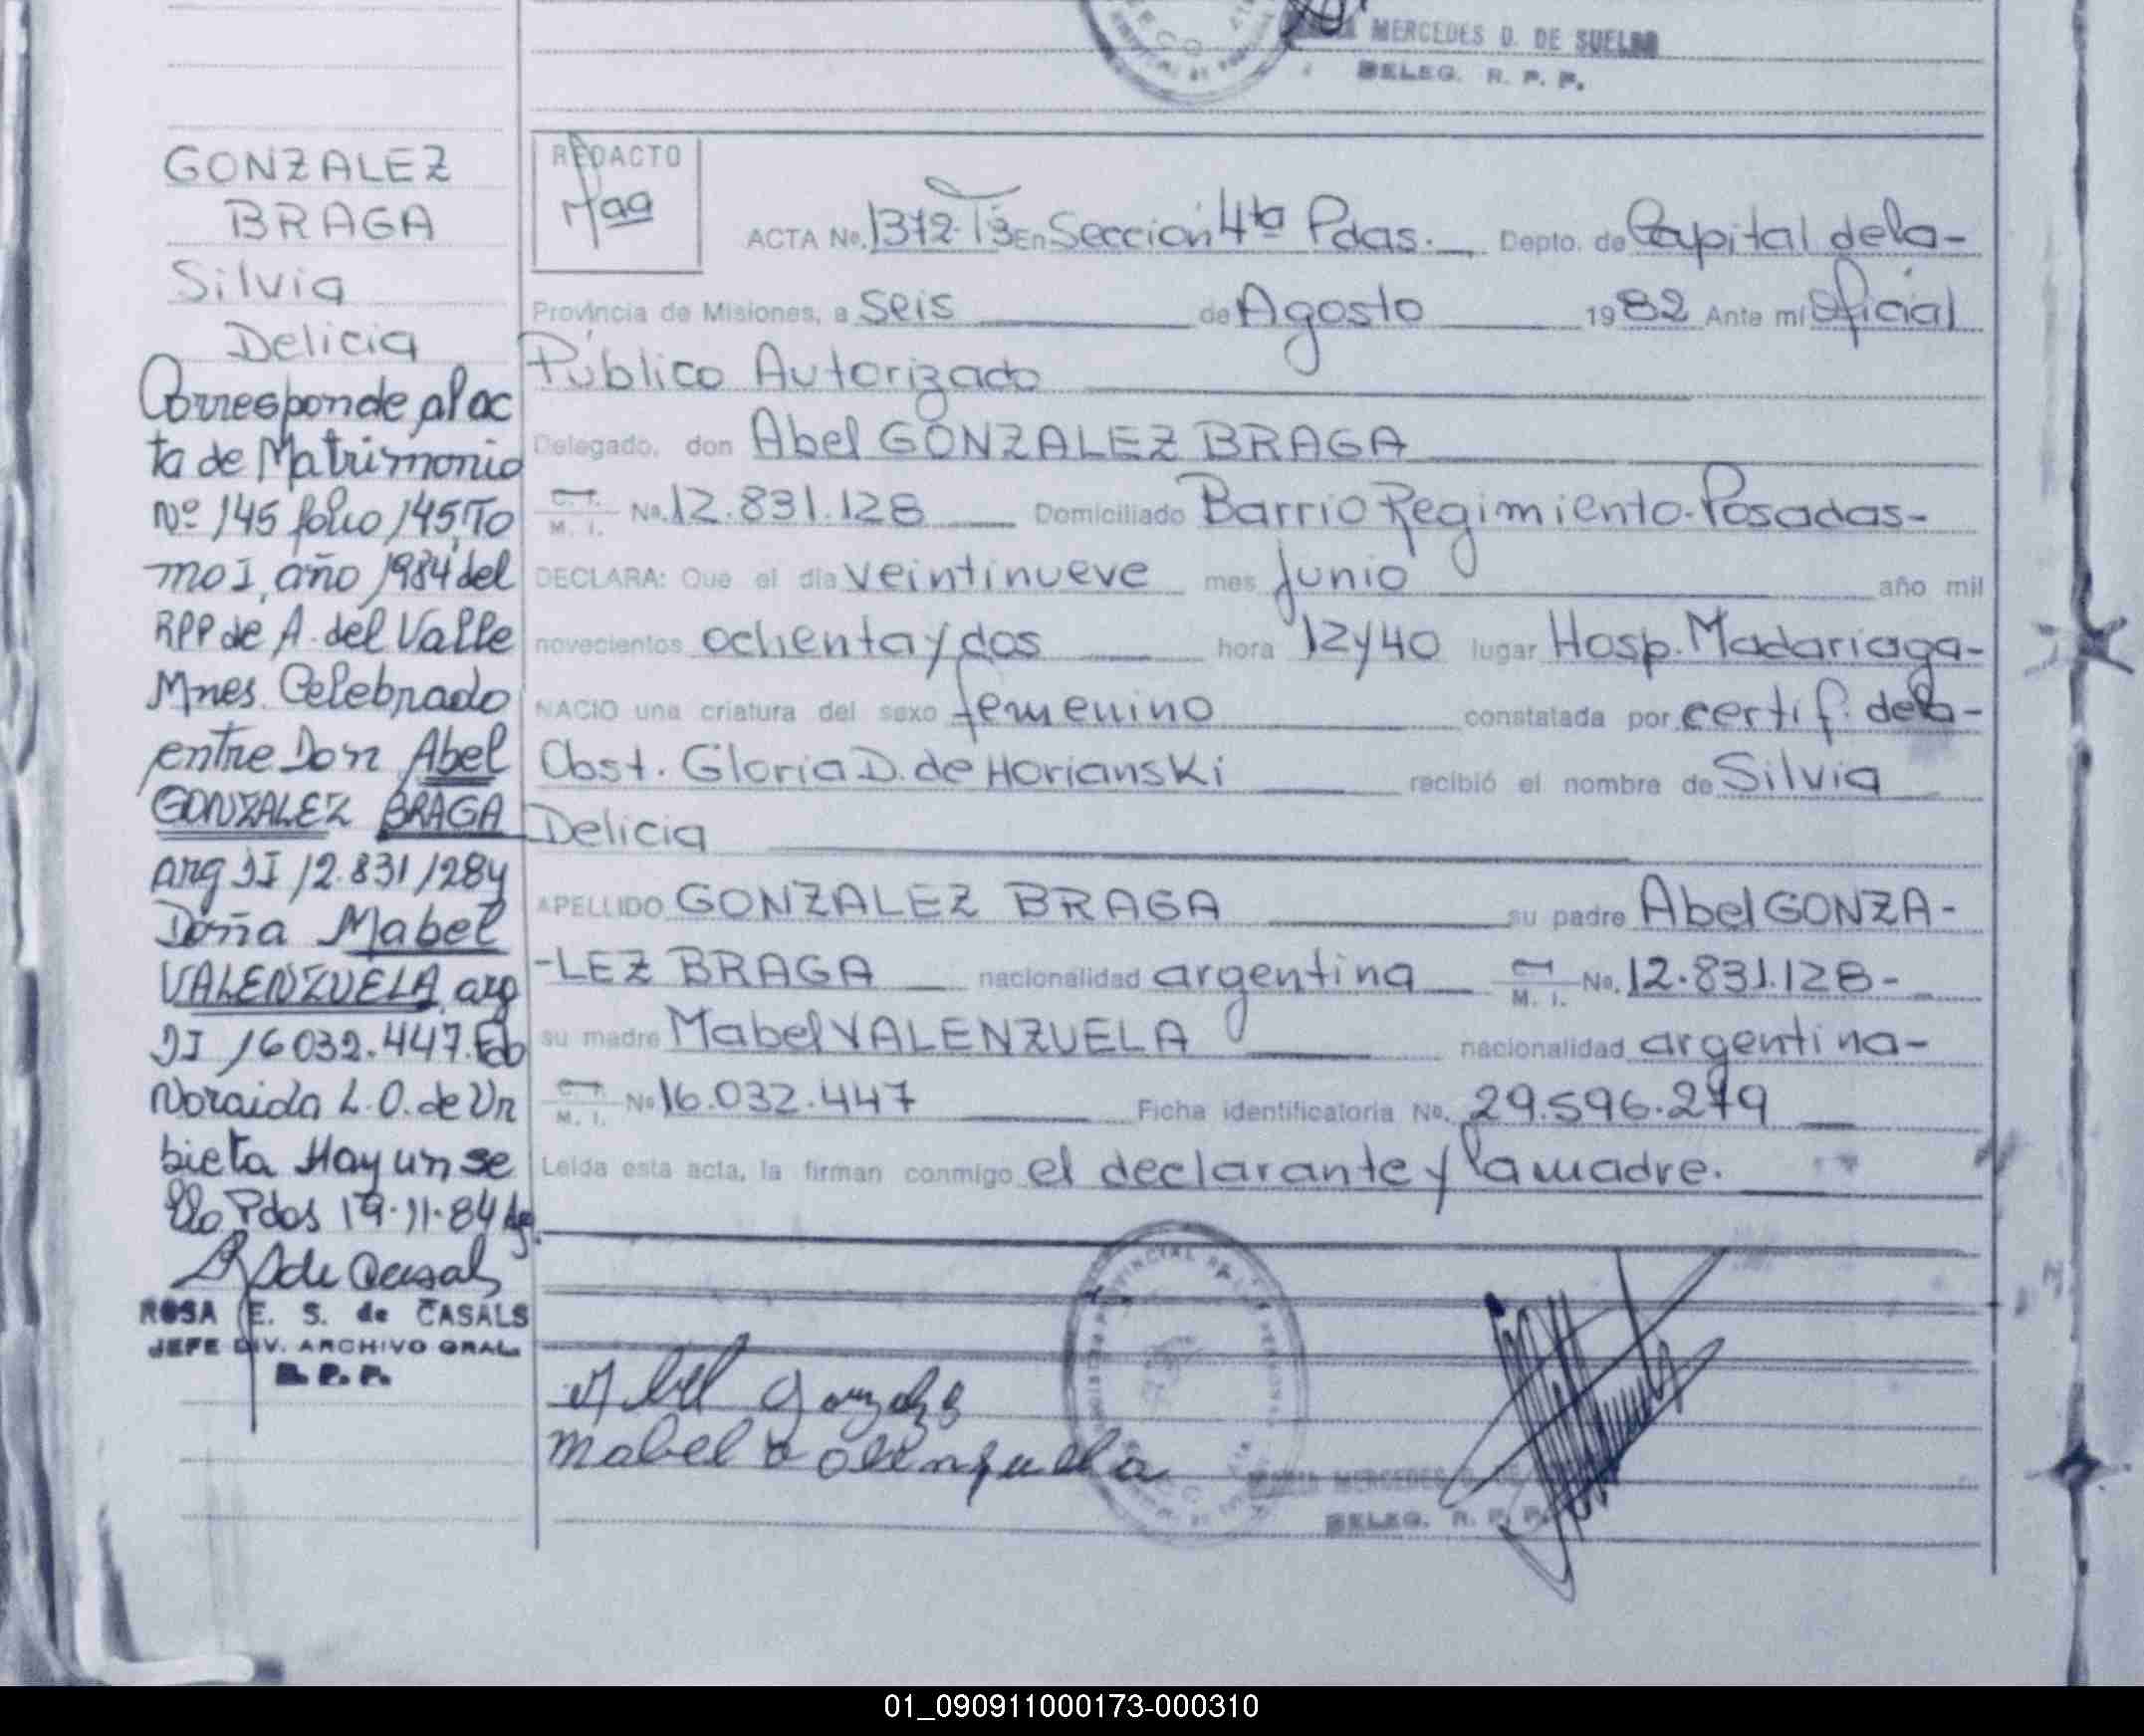 MERCEDES D. DE SUELDO
DELEG. R. P. P.
GONZALEZ
BRAGA
Silvia
Delicia
Corresponde al ac
ta de Matrimonio
Nº 145 folio 145, To
mo I, año 1984 del
RPP de A. del Valle
Mnes. Celebrado
entre Don Abel
GONZALEZ BRAGA
arg DI 12.831128 y
Doña Mabel
VALENZUELA, arg
DI 16032.447. Fdo
Noraida L. O. de Ur
bieta Hay un se
llo Pdas 19-11-84
ROSA E. S. de CASALS
JEFE DIV. ARCHIVO GRAL.
R. P. P.
REDACTO
ACTA No. 1372-T3 En Sección 4ta Pdas. Depto. de Capital de la-
Provincia de Misiones, a seis de Agosto 1982 Ante mí Oficial
Público Autorizado
Delegado, don Abel GONZALEZ BRAGA
C. I. M. I. No. 12.831.128 Domiciliado Barrio Regimiento-Posadas-
DECLARA: Que el día veintinueve mes junio año mil
novecientos ochenta y dos hora 12y40 lugar Hosp. Madariaga-
NACIO una criatura del sexo femenino constatada por certif. de la-
Obst. Gloria D. de Horianski recibió el nombre de Silvia
Delicia
APELLIDO GONZALEZ BRAGA su padre Abel GONZA-
-LEZ BRAGA nacionalidad argentina C. I. M. I. No. 12.831.128-
su madre Mabel VALENZUELA nacionalidad argentina-
C. I. M. I. No 16.032.447 Ficha identificatoria No. 29.596.279
Leída esta acta, la firman conmigo el declarante y la madre.
Abel Gonzalez
Mabel Valenzuela
MERCEDES D.
DELEG. R. P. P.
01_090911000173-000310